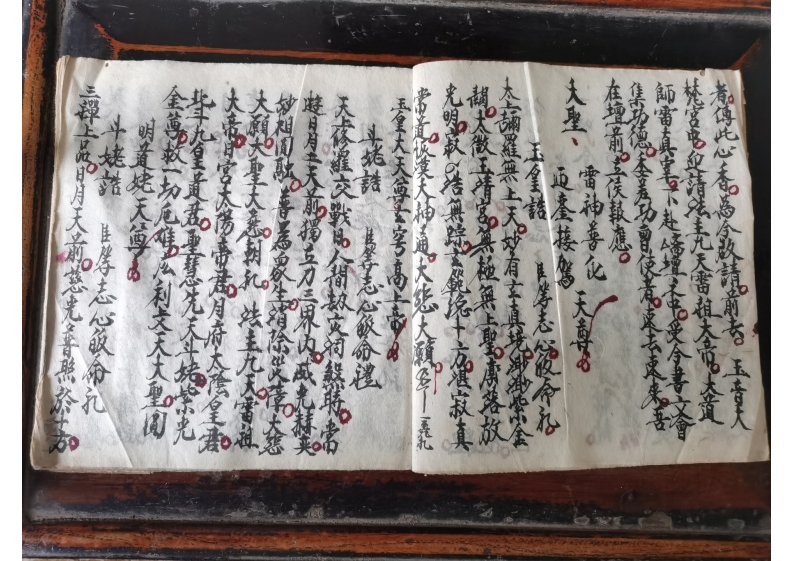 者傳此心香為今敬請前去 玉音大
梵宮中迎請法主九天雷祖大帝大道
師雷真君下赴瑤壇之中受今書文會
集功德委差功曹使者速去速來吾
在壇前立俟報應
大聖 雷神普化 天尊
迎鑾接駕
玉皇誥 臣等志心皈命礼
太上彌羅無上天妙有玄真境渺渺紫金
闕太微玉清宮無極無上聖廓落放
光明寂寂浩無踪玄範總十方湛寂真
常道恢漠大神通大悲大願
玉皇大天尊玄穹高上帝
斗姥誥 臣等志心皈命禮
天上修羅交戰日人間劫灾時當
凝日月五天前獨立刀三界內威光赫奕
妙相圓融普為眾生消除災障大慈
大願大聖大慈朝礼 法主九天雷祖
大帝日宮太陽帝君月府太陰皇君
北斗九皇道君聖慈先天斗姥紫光
金尊救一切厄難 天大聖圓
明道姥天尊
斗姥誥 臣等志心皈命礼
三 上品日月天前慈光普照於十方